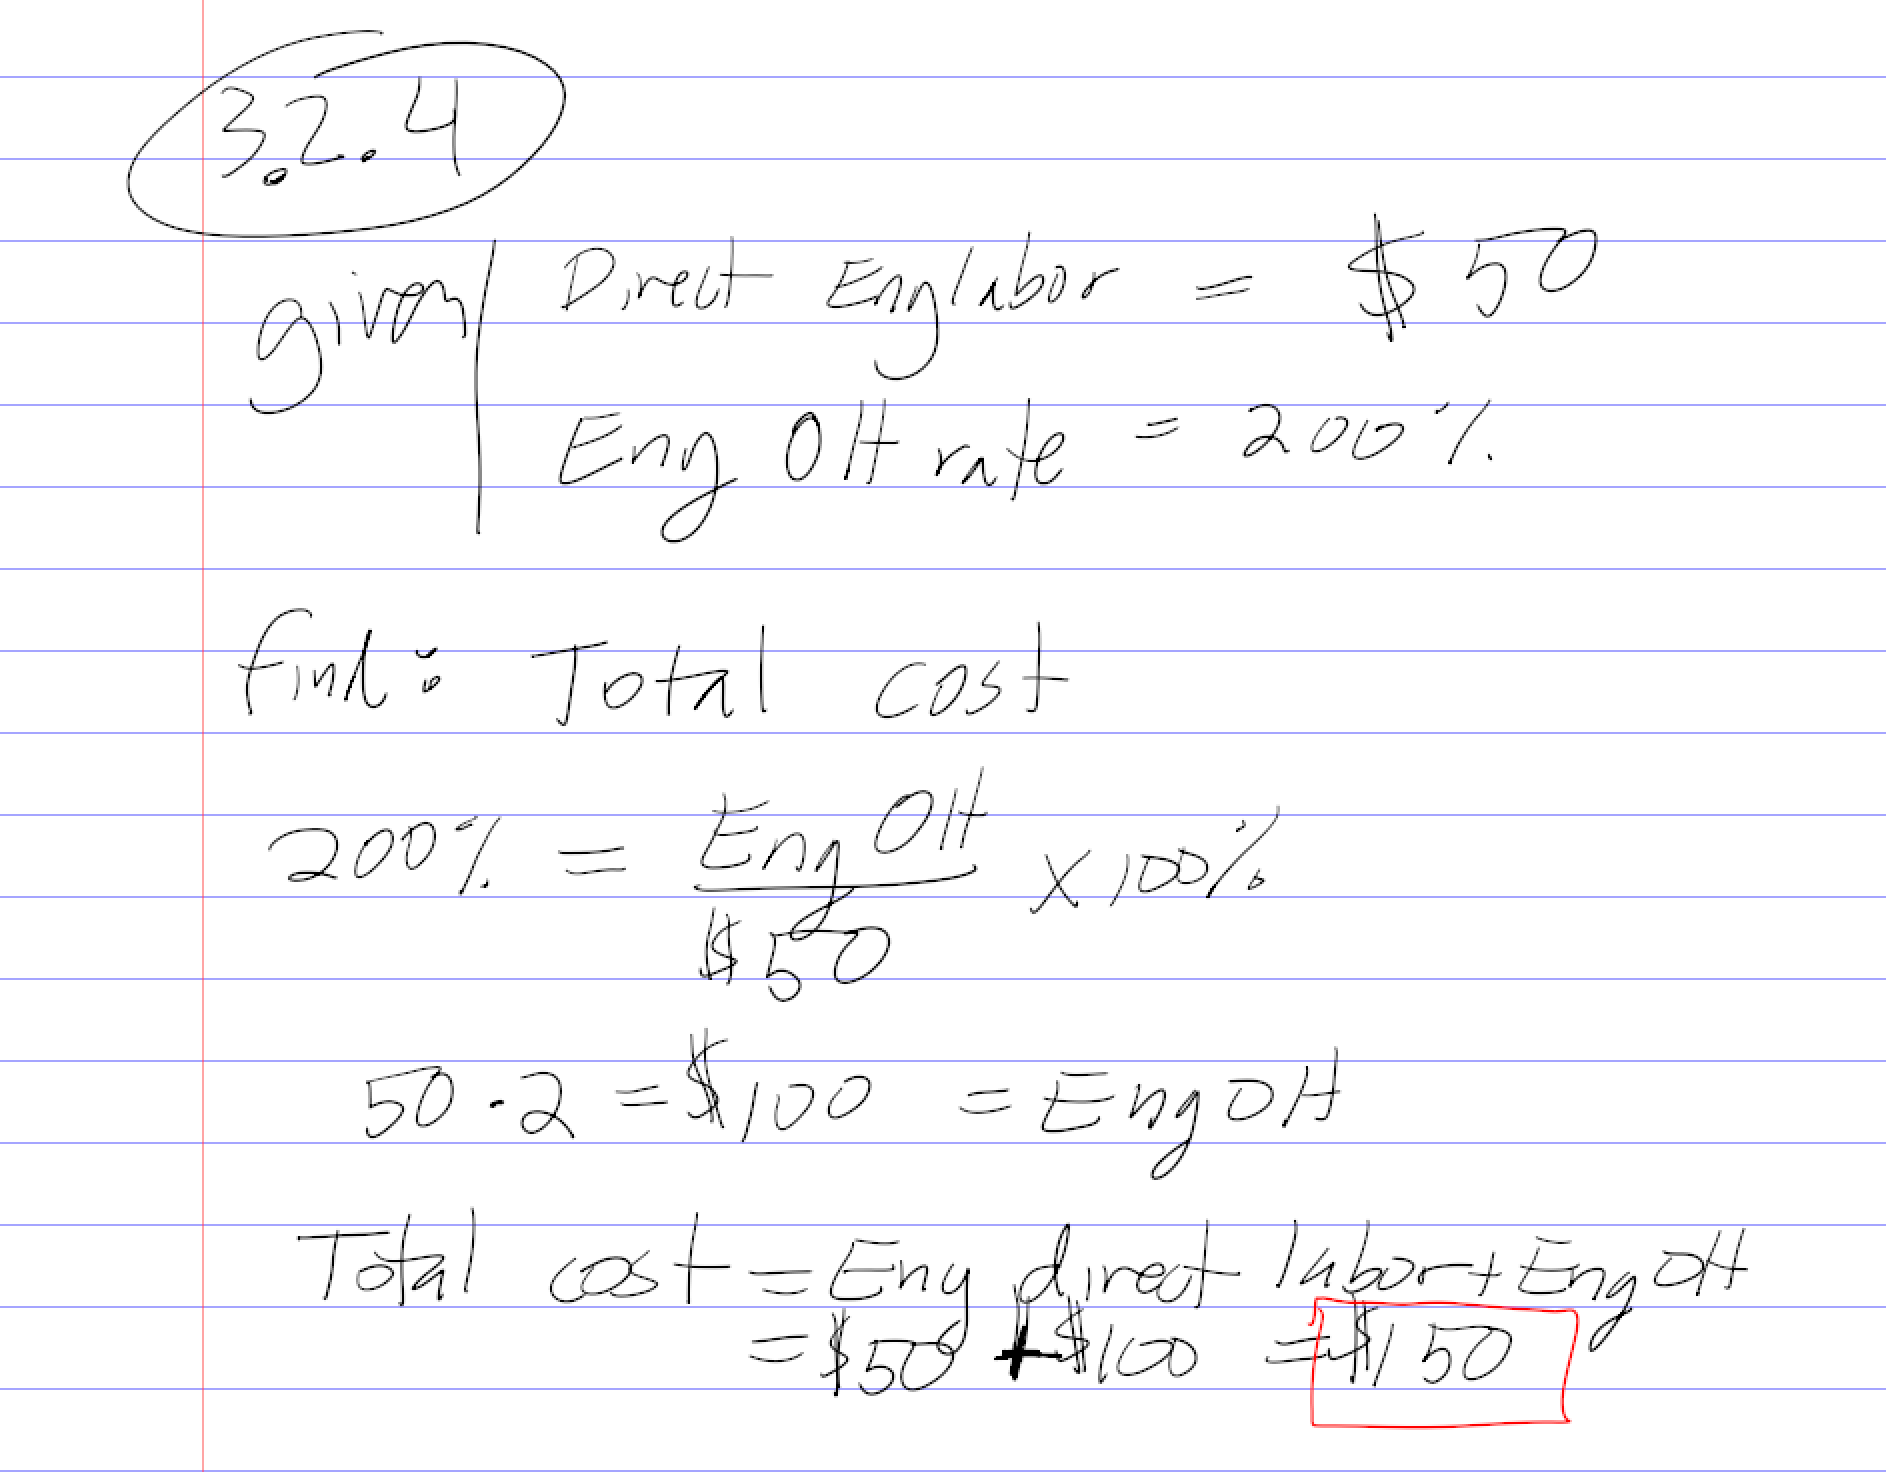 3.2.4
given | Direct Eng labor = $50
Eng OH rate = 200%
find: Total cost
200% = Eng OH / $50 x 100%
50 · 2 = $100 = Eng OH
Total cost = Eng direct labor + Eng OH
= $50 + $100 = $150